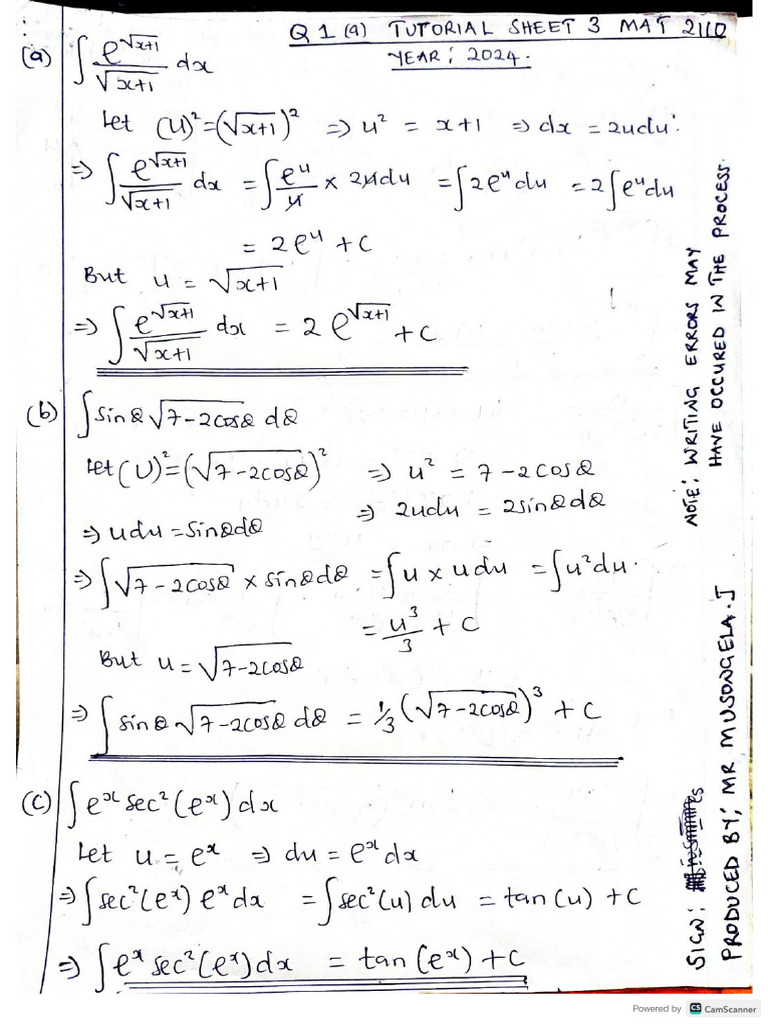 Q 1 (a) TUTORIAL SHEET 3 MAT 2110
YEAR: 2024.
(a) ∫ e^√(x+1) / √(x+1) dx
Let (u)² = (√(x+1))² ⇒ u² = x+1 ⇒ dx = 2udu.
⇒ ∫ e^√(x+1) / √(x+1) dx = ∫ e^u / u × 2udu = ∫ 2e^u du = 2∫ e^u du
= 2e^u + C
But u = √(x+1)
⇒ ∫ e^√(x+1) / √(x+1) dx = 2 e^√(x+1) + C
(b) ∫ sinθ √(7-2cosθ) dθ
Let (U)² = (√(7-2cosθ))² ⇒ u² = 7-2cosθ
⇒ 2udu = 2sinθdθ
⇒ udu = sinθdθ
⇒ ∫ √(7-2cosθ) × sinθdθ = ∫ u × udu = ∫ u² du.
= u³/3 + C
But u = √(7-2cosθ)
⇒ ∫ sinθ √(7-2cosθ) dθ = 1/3 (√(7-2cosθ))³ + C
(c) ∫ e^x sec²(e^x) dx
Let u = e^x ⇒ du = e^x dx
⇒ ∫ sec²(e^x) e^x dx = ∫ sec²(u) du = tan(u) + C
⇒ ∫ e^x sec²(e^x) dx = tan(e^x) + C
NOTE: WRITING ERRORS MAY
HAVE OCCURED IN THE PROCESS.
SIGN:
PRODUCED BY; MR MUSONGELA.J
Powered by CS CamScanner